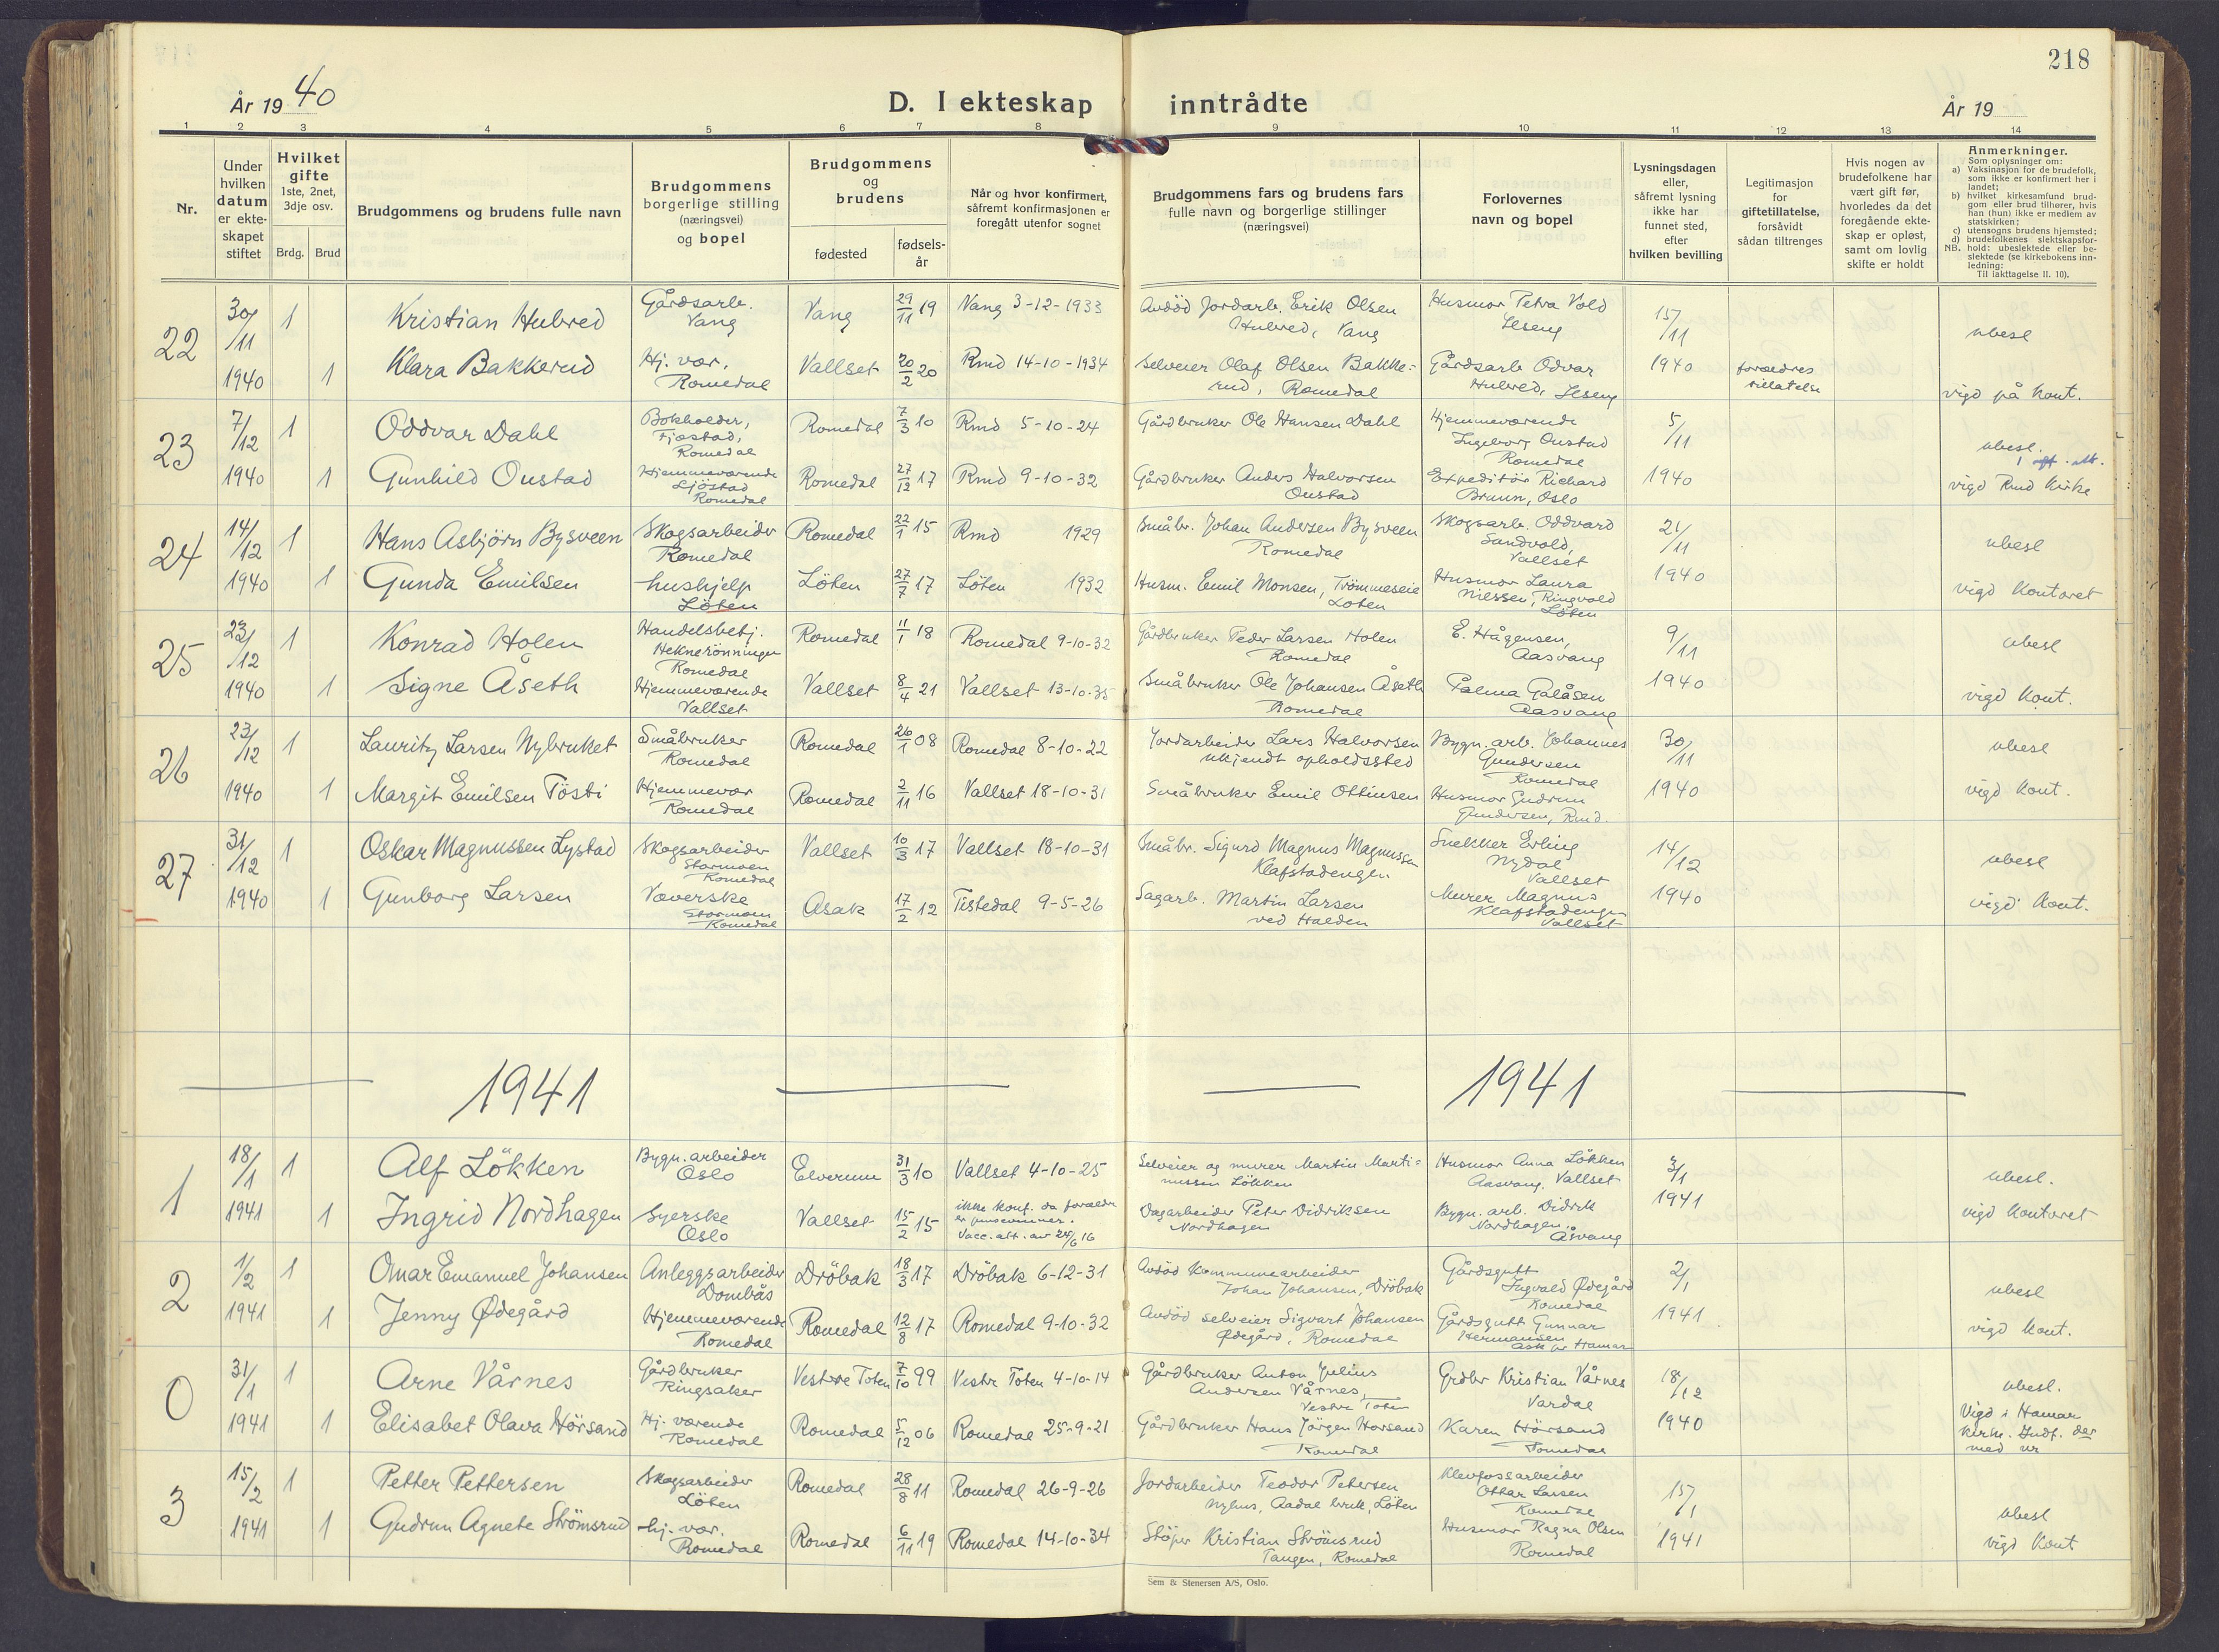 218
År 19 40
D. I ekteskap inntrådte
År 19
1 2 3 4 5 6 7 8 9 10 11 12 13 14
Nr.
Under
hvilken
datum
er ekte-
skapet
stiftet
Hvilket
gifte
1ste, 2net,
3dje osv.
Brdg. Brud
Brudgommens og brudens fulle navn
Brudgommens
borgerlige stilling
(næringsvei)
og bopel
Brudgommens
og
brudens
fødested
fødsels-
år
Når og hvor konfirmert,
såfremt konfirmasjonen er
foregått utenfor sognet
Brudgommens fars og brudens fars
fulle navn og borgerlige stillinger
(næringsvei)
Forlovernes
navn og bopel
Lysningsdagen
eller,
såfremt lysning
ikke har
funnet sted,
efter
hvilken bevilling
Legitimasjon
for
giftetillatelse,
forsåvidt
sådan tiltrenges
Hvis nogen av
brudefolkene har
vært gift før,
hvorledes da det
foregående ekte-
skap er opløst,
samt om lovlig
skifte er holdt
Anmerkninger.
Som oplysninger om:
a) Vaksinasjon for de brudefolk,
som ikke er konfirmert her i
landet;
b) hvilket kirkesamfund brud-
gom eller brud tilhører, hvis
han (hun) ikke er medlem av
statskirken;
c) utensogns brudens hjemsted;
d) brudefolkenes slektskapsfor-
NB. hold: ubeslektede eller be-
slektede (se kirkebokens inn-
ledning:
Til iakttagelse II. 10).
22 30/11 1940 1 Kristian Hulred Gårdsarb. Vang Vang 29/11 19 Vang 3-12-1933 Avdöd Jordarb. Erik Olsen Hulred, Vang Husmor Petra Vold Ilseng 15/11 1940 ubesl
1 Klara Bakkerud Hj. vær. Romedal Vallset 20/2 20 Rmd 14-10-1934 Selveier Olaf Olsen Bakke= rud, Romedal Gårdsarb Odvar Hulred, Ilseng foreldres tillatelse vigd på kont.
23 7/12 1940 1 Oddvar Dahl Bokholder, Fjæstad, Romedal Romedal 7/3 10 Rmd 5-10-24 Gårdbruker Ole Hansen Dahl Hjemmeværende Ingeborg Oustad Romedal 5/11 1940 ubesl.
1 Gunhild Oustad Hjemmeværende Ljöstad Romedal Romedal 27/12 17 Rmd 9-10-32 Gårdbruker Anders Halvorsen Oustad Expeditör Richard Bruun, Oslo vigd Rmd Kirke
24 14/12 1940 1 Hans Asbjörn Bysveen Skogsarbeider Romedal Romedal 22/1 15 Rmd 1929 Småbr. Johan Andersen Bysveen Romedal Skogsarb. Oddvard Sandvold, Vallset 21/11 1940 ubesl
1 Gunda Emilsen hushjelp Löten Löten 27/7 17 Löten 1932 Husm. Emil Monsen, Trömmeseie Löten Husmor Laura Nilssen, Ringvold Löten vigd Kontoret
25 23/12 1940 1 Konrad Holen Handelsbetj. Heknerönningen Romedal Romedal 11/1 18 Romedal 9-10-32 Gårdbruker Peder Larsen Holen Romedal E. Hågensen, Aasvang 9/11 1940 ubesl
1 Signe Åseth Hjemmeværende Vallset Vallset 8/4 21 Vallset 13-10-35 Småbruker Ole Johansen Åseth Romedal Palma Galåsen Aasvang vigd kont.
26 23/12 1940 1 Lauritz Larsen Nybruket Småbruker Romedal Romedal 26/1 08 Romedal 8-10-22 Jordarbeider Lars Halvorsen ukjendt opholdssted Bygn. arb. Johannes Gundersen Romedal 30/11 1940 ubesl
1 Margit Emilsen Tösti Hjemmevær Romedal Romedal 2/11 16 Vallset 18-10-31 Småbruker Emil Ottinsen Husmor Gudrun Gundersen, Rmd. vigd kont.
27 31/12 1940 1 Oskar Magnussen Lystad Skogsarbeider Stormoen Romedal Vallset 10/3 17 Vallset 18-10-31 Småbr. Sigurd Magnus Magnussen Klafstadengen Snekker Erling Nydal Vallset 14/12 1940 ubesl
1 Gunborg Larsen Væverske Stormoen Romedal Asak 17/2 12 Tistedal 9-5-26 Sagarb. Martin Larsen ved Halden Murer Magnus Klafstadengen Vallset vigd kont.
1941 1941
1 18/1 1941 1 Alf Lökken Bygn. arbeider Oslo Elverum 31/3 10 Vallset 4-10-25 Selveier og murer Martin Marti= nussen Lökken Husmor Anna Lökken Aasvang, Vallset 3/1 1941 ubesl.
1 Ingrid Nordhagen Syerske Oslo Vallset 15/2 15 ikke konf. da foreldre er pinsevenner. Vacc. att. av 24/6 16 Dagarbeider Peter Didriksen Nordhagen Bygn. arb. Didrik Nordhagen, Åsvang vigd Kontoret
2 1/2 1941 1 Omar Emanuel Johansen Anleggsarbeider Dombås Dröbak 18/3 17 Dröbak 6-12-31 Avdöd Kommunearbeider Johan Johansen, Dröbak Gårdsgutt Ingvald Ødegård Romedal 2/1 1941 ubesl
1 Jenny Ødegård Hjemmeværende Romedal Romedal 12/8 17 Romedal 9-10-32 Avdöd selveier Sigvart Johansen Ødegård, Romedal Gårdsgutt Gunnar Hermansen Ask pr Hamar vigd kont.
0 31/1 1941 1 Arne Vårnes Gårdbruker Ringsaker Vestre Toten 7/10 99 Vestre Toten 4-10-14 Gårdbruker Anton Julius Andersen Vårnes, Vestre Toten Grdbr Kristian Vårnes Vardal 18/12 1940 ubesl.
1 Elisabet Olava Hörsand Hj. værende Romedal Romedal 5/12 06 Romedal 25-9-21 Gårdbruker Hans Jörgen Horsand Romedal Karen Hörsand Romedal Vigd i Hamar kirke. Indf. der med nr
3 15/2 1941 1 Petter Pettersen Skogsarbeider Löten Romedal 28/8 11 Romedal 26-9-26 Jordarbeider Teodor Petersen Nyhus, Aadal bruk, Löten Klevfossarbeider Ottar Larsen Romedal 15/1 1941 ubesl
1 Gudrun Agnete Strömsrud hj. vær. Romedal Romedal 6/11 19 Romedal 14-10-34 Stöper Kristian Strömsrud Tangen, Romedal Husmor Ragna Olsen Romedal vigd Kont
Sem & Stenersen A/S, Oslo.